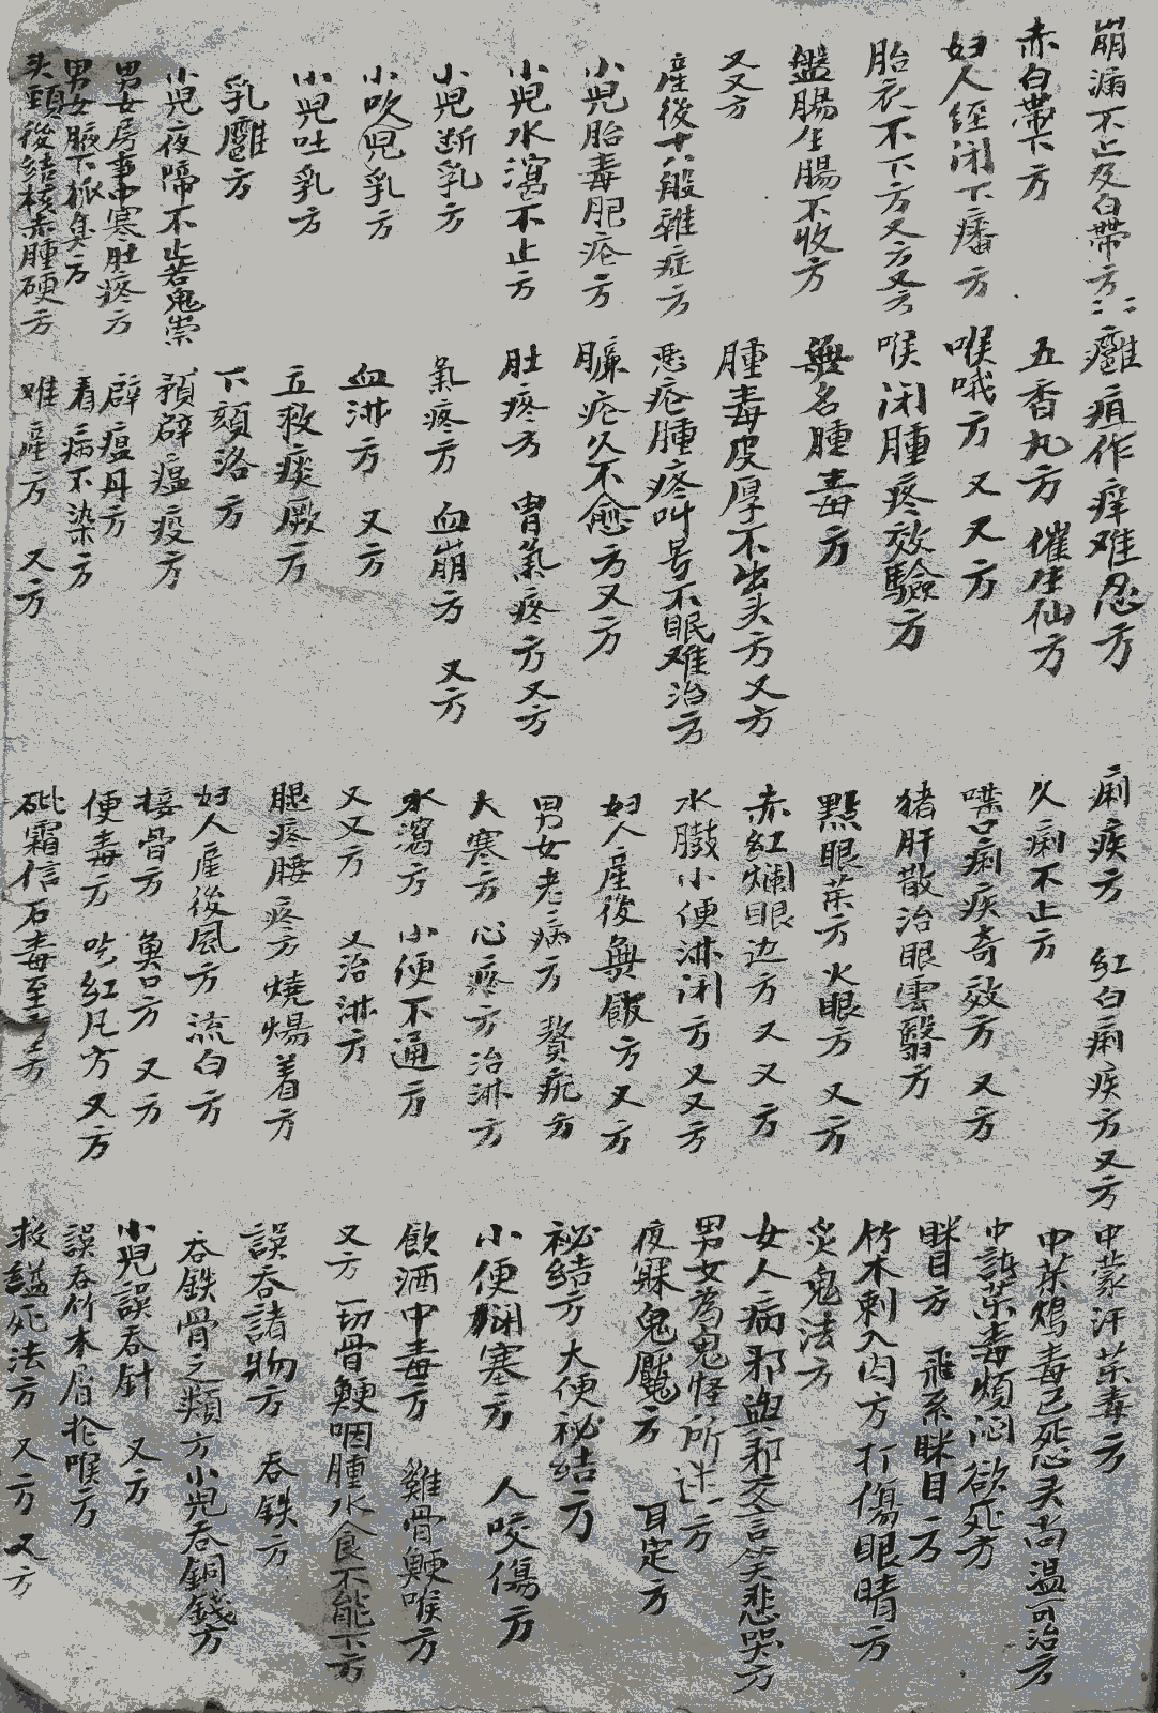 崩漏不止及白帶方
赤白帶下方
妇人經闭下癥方
胎衣不下方又方又方
盤腸生腸不收方
又又方
產後十八般雜症方
小児胎毒肥疮方
小児水瀉不止方
小児断乳方
小吹児乳方
小児吐乳方
乳癰方
小児夜啼不止若鬼祟
男女房事中寒肚疼方
男女腋下狐臭方
头頸後結核赤腫硬方
癰疽作痒难忍方
五香丸方 催生仙方
喉哦方 又又方
喉闭腫疼效驗方
無名腫毒方
腫毒皮厚不出头方又方
恶疮腫疼叫号不眠难治方
臁疮久不愈方又方
肚疼方 胃氣疼方又方
氣疼方 血崩方 又方
血淋方 又方
立救痰厥方
下頦洛方
預辟瘟疫方
辟瘟丹方
看病不染方
难產方 又方
痢疾方 紅白痢疾方又方
久痢不止方
噤口痢疾奇效方 又方
猪肝散治眼雲翳方
點眼茶方 火眼方 又方
赤紅爛眼边方又又方
水臌小便淋闭方又又方
妇人產後無飯方又方
男女老病方 贅疣方
大寒方 心疼方治淋方
水瀉方 小便不通方
又又方 又治淋方
腿疼腰疼方 燒煬着方
妇人產後風方 流白方
接骨方 魚口方 又方
便毒方 吃紅凡方又方
砒霜信石毒至方
中蒙汗茶毒方
中茶鴆毒已死心头尚温可治方
中諸茶毒煩闷欲死方
眯目方 飛系眯目方
竹木刺入肉方打傷眼睛方
炙鬼法方
女人病邪與邪交言笑悲哭方
男女為鬼怪所迷方
夜寐鬼魘方 耳定方
祕結方大便祕结方
小便闭塞方 人咬傷方
飲酒中毒方 雞骨鯁喉方
又方 一切骨鯁咽腫水食不能下方
誤吞諸物方 吞鉄方
吞鉄骨之類方小児吞銅錢方
小児誤吞針 又方
誤吞竹木屑抢喉方
救縊死法方 又方 又方